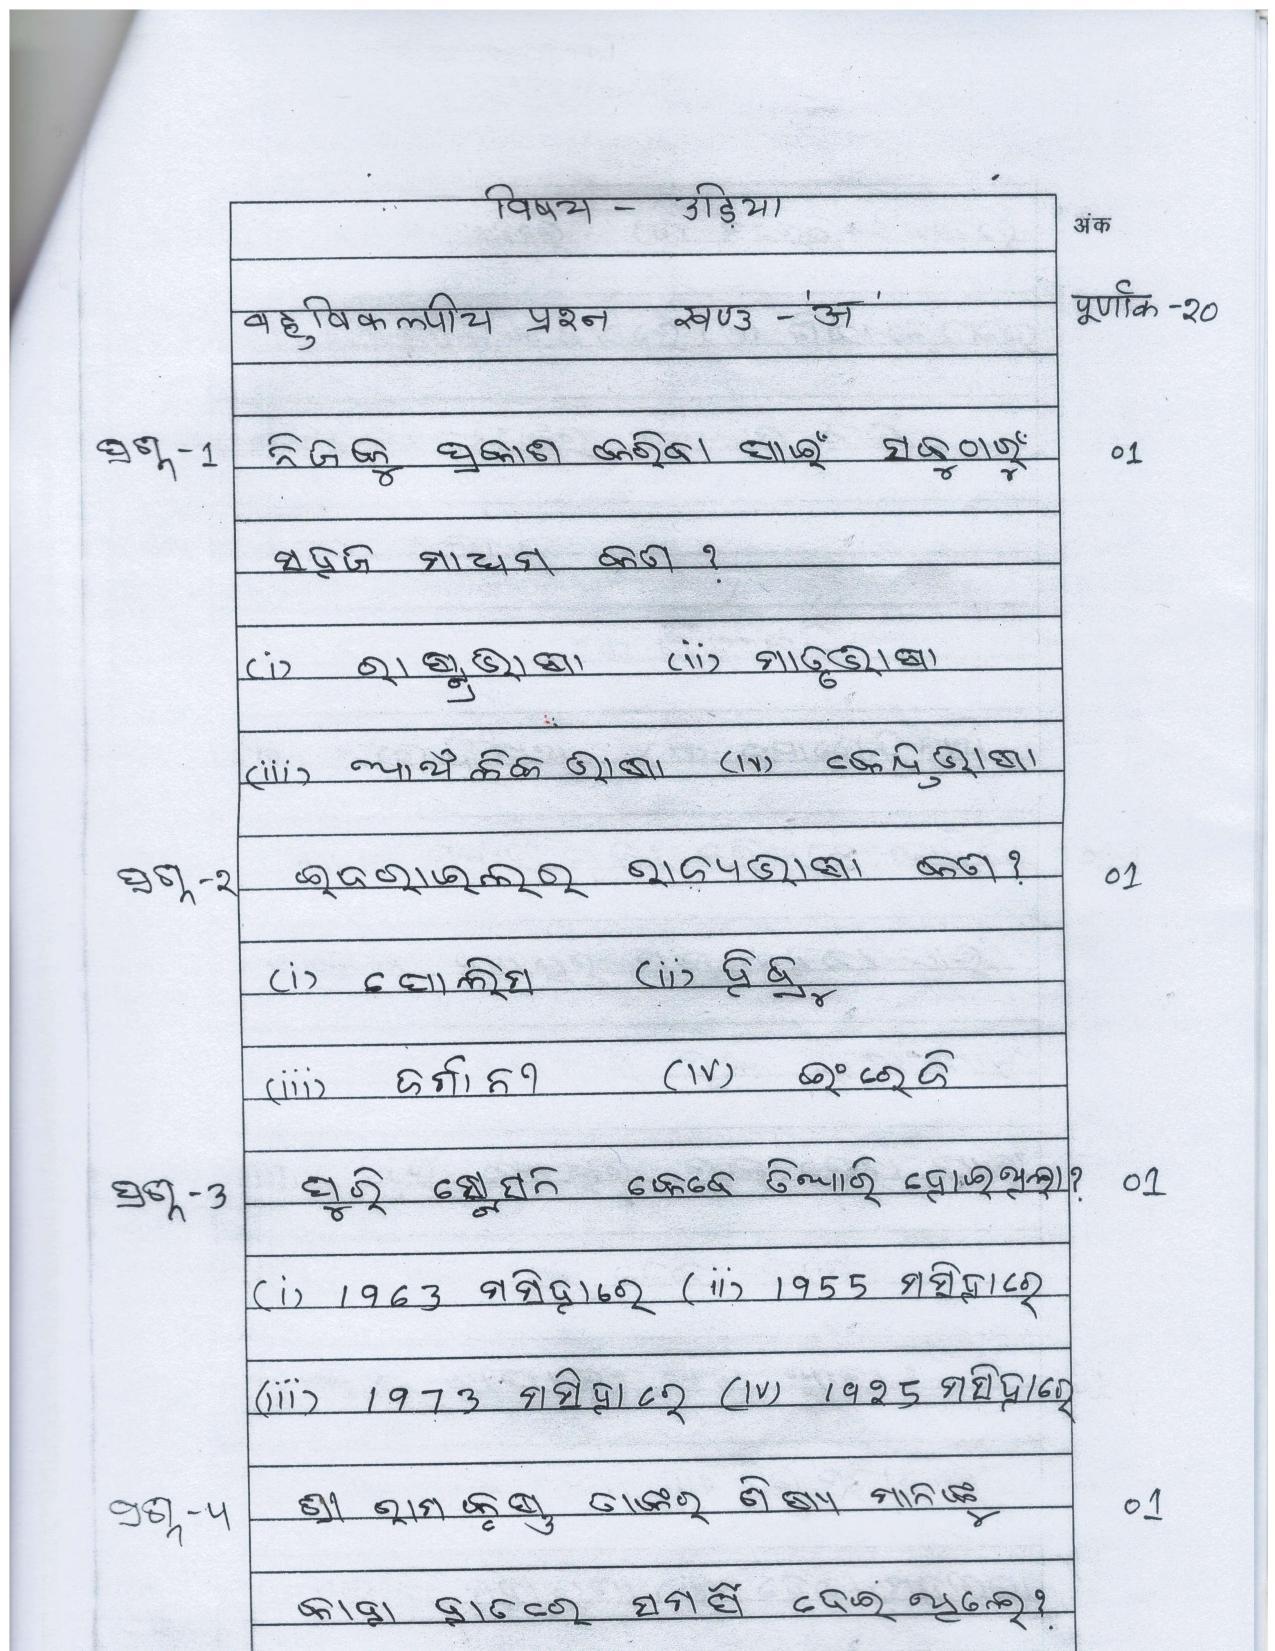 विषय - उड़िया
अंक
बहुविकल्पीय प्रश्न खण्ड - 'अ'
पूर्णांक -२०
ପ୍ରଶ୍ନ -1 ନିଜକୁ ପ୍ରକାଶ କରିବା ପାଇଁ ସବୁଠାରୁଁ 01
ସହଜ ମାଧ୍ୟମ କେତା ?
(i) ରାଷ୍ଟ୍ରଭାଷା (ii) ମାତୃଭାଷା
(iii) ଆଞ୍ଚଳିକ ଭାଷା (iv) କେନ୍ଦ୍ରଭାଷା
ପ୍ରଶ୍ନ -2 ଇଜରାଇଲର ରାଜ୍ୟଭାଷା କେତା ? 01
(i) ପୋଲିସ (ii) ହିବ୍ରୁ
(iii) ଜର୍ମାନୀ (iv) ଇଂରେଜି
ପ୍ରଶ୍ନ -3 ପୁରି ଷ୍ଟେସନ କେବେ ତିଆରି ହୋଇଥିଲା ? 01
(i) 1963 ମସିହାରେ (ii) 1955 ମସିହାରେ
(iii) 1973 ମସିହାରେ (iv) 1925 ମସିହାରେ
ପ୍ରଶ୍ନ -4 ଶ୍ରୀ ରାମକୃଷ୍ଣ ତାଙ୍କର ଶିଷ୍ୟ ମାନଙ୍କୁ 01
କାହା ହାତରେ ସମର୍ପି ଦେଇଥିଲେ ?